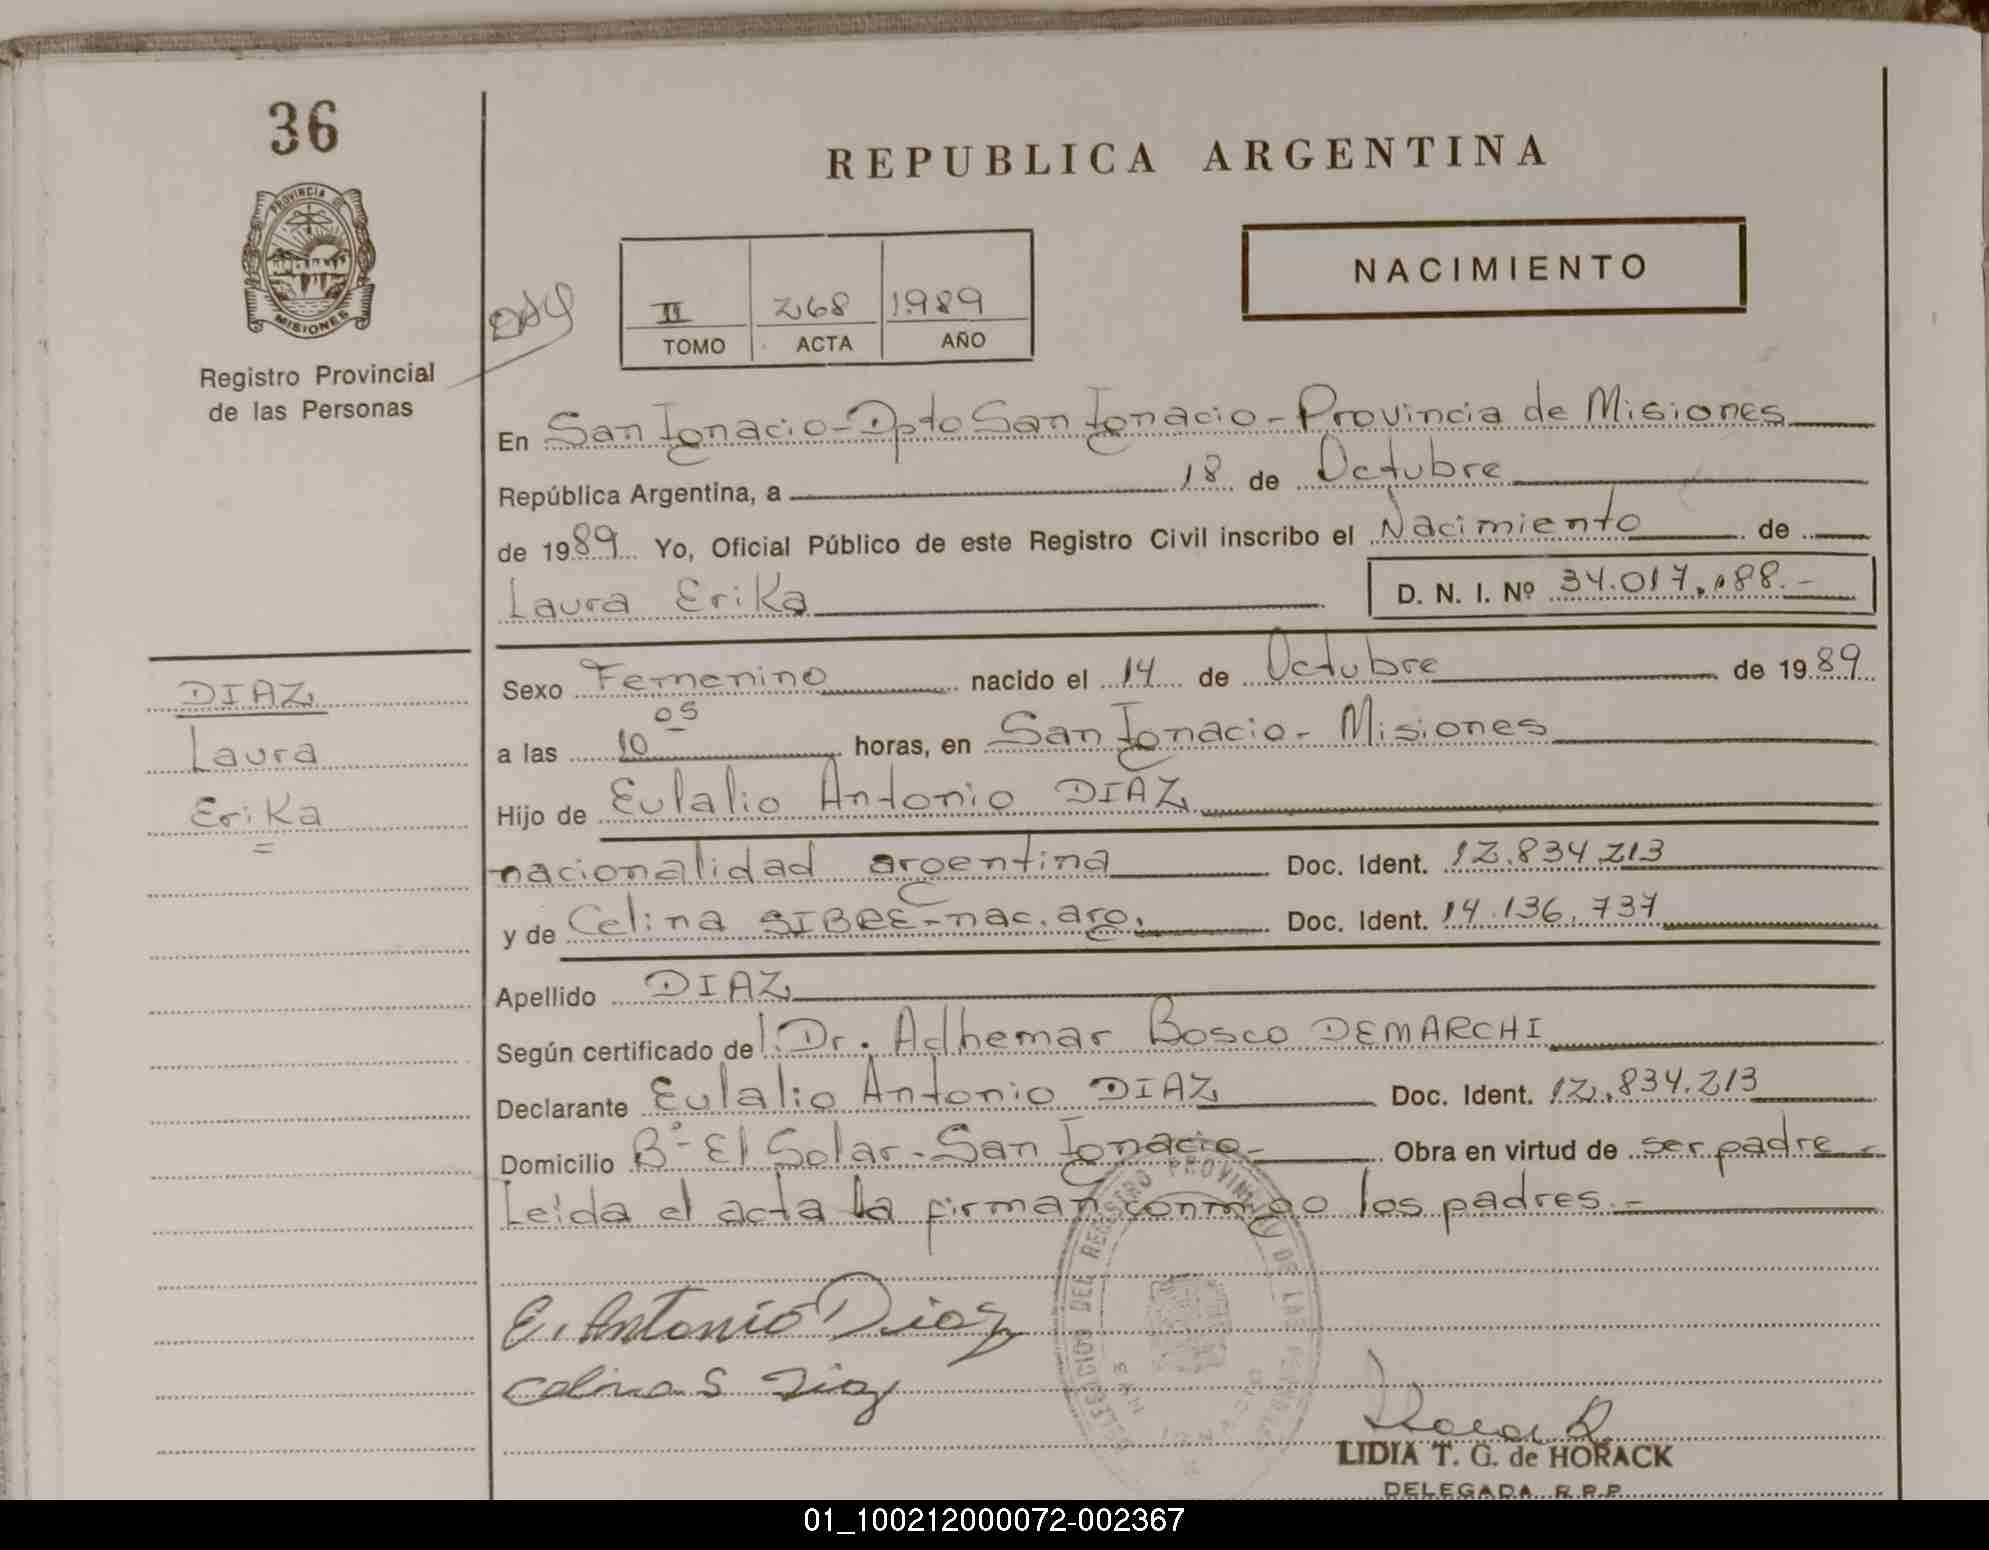 36
REPUBLICA ARGENTINA
PROVINCIA DE
MISIONES
Registro Provincial
de las Personas
NACIMIENTO
II 268 1989
TOMO ACTA AÑO
En San Ignacio - Dpto San Ignacio - Provincia de Misiones
República Argentina, a 18 de Octubre
de 1989 Yo, Oficial Público de este Registro Civil inscribo el Nacimiento de
Laura Erika D. N. I. Nº 34.017.088.-
DIAZ
Laura
Erika
Sexo Femenino nacido el 14 de Octubre de 1989
a las 10 05 horas, en San Ignacio - Misiones
Hijo de Eulalio Antonio DIAZ
nacionalidad argentina Doc. Ident. 12.834.213
y de Celina SIBRE - nac. arg. Doc. Ident. 14.136.737
Apellido DIAZ
Según certificado del Dr. Adhemar Bosco DEMARCHI
Declarante Eulalio Antonio DIAZ Doc. Ident. 12.834.213
Domicilio Bº El Solar - San Ignacio - Obra en virtud de ser padre -
Leída el acta la firman conmigo los padres.-
E. Antonio Diaz
Celina S. Diaz
LIDIA T. G. de HORACK
DELEGADA R.P.P.
01_100212000072-002367